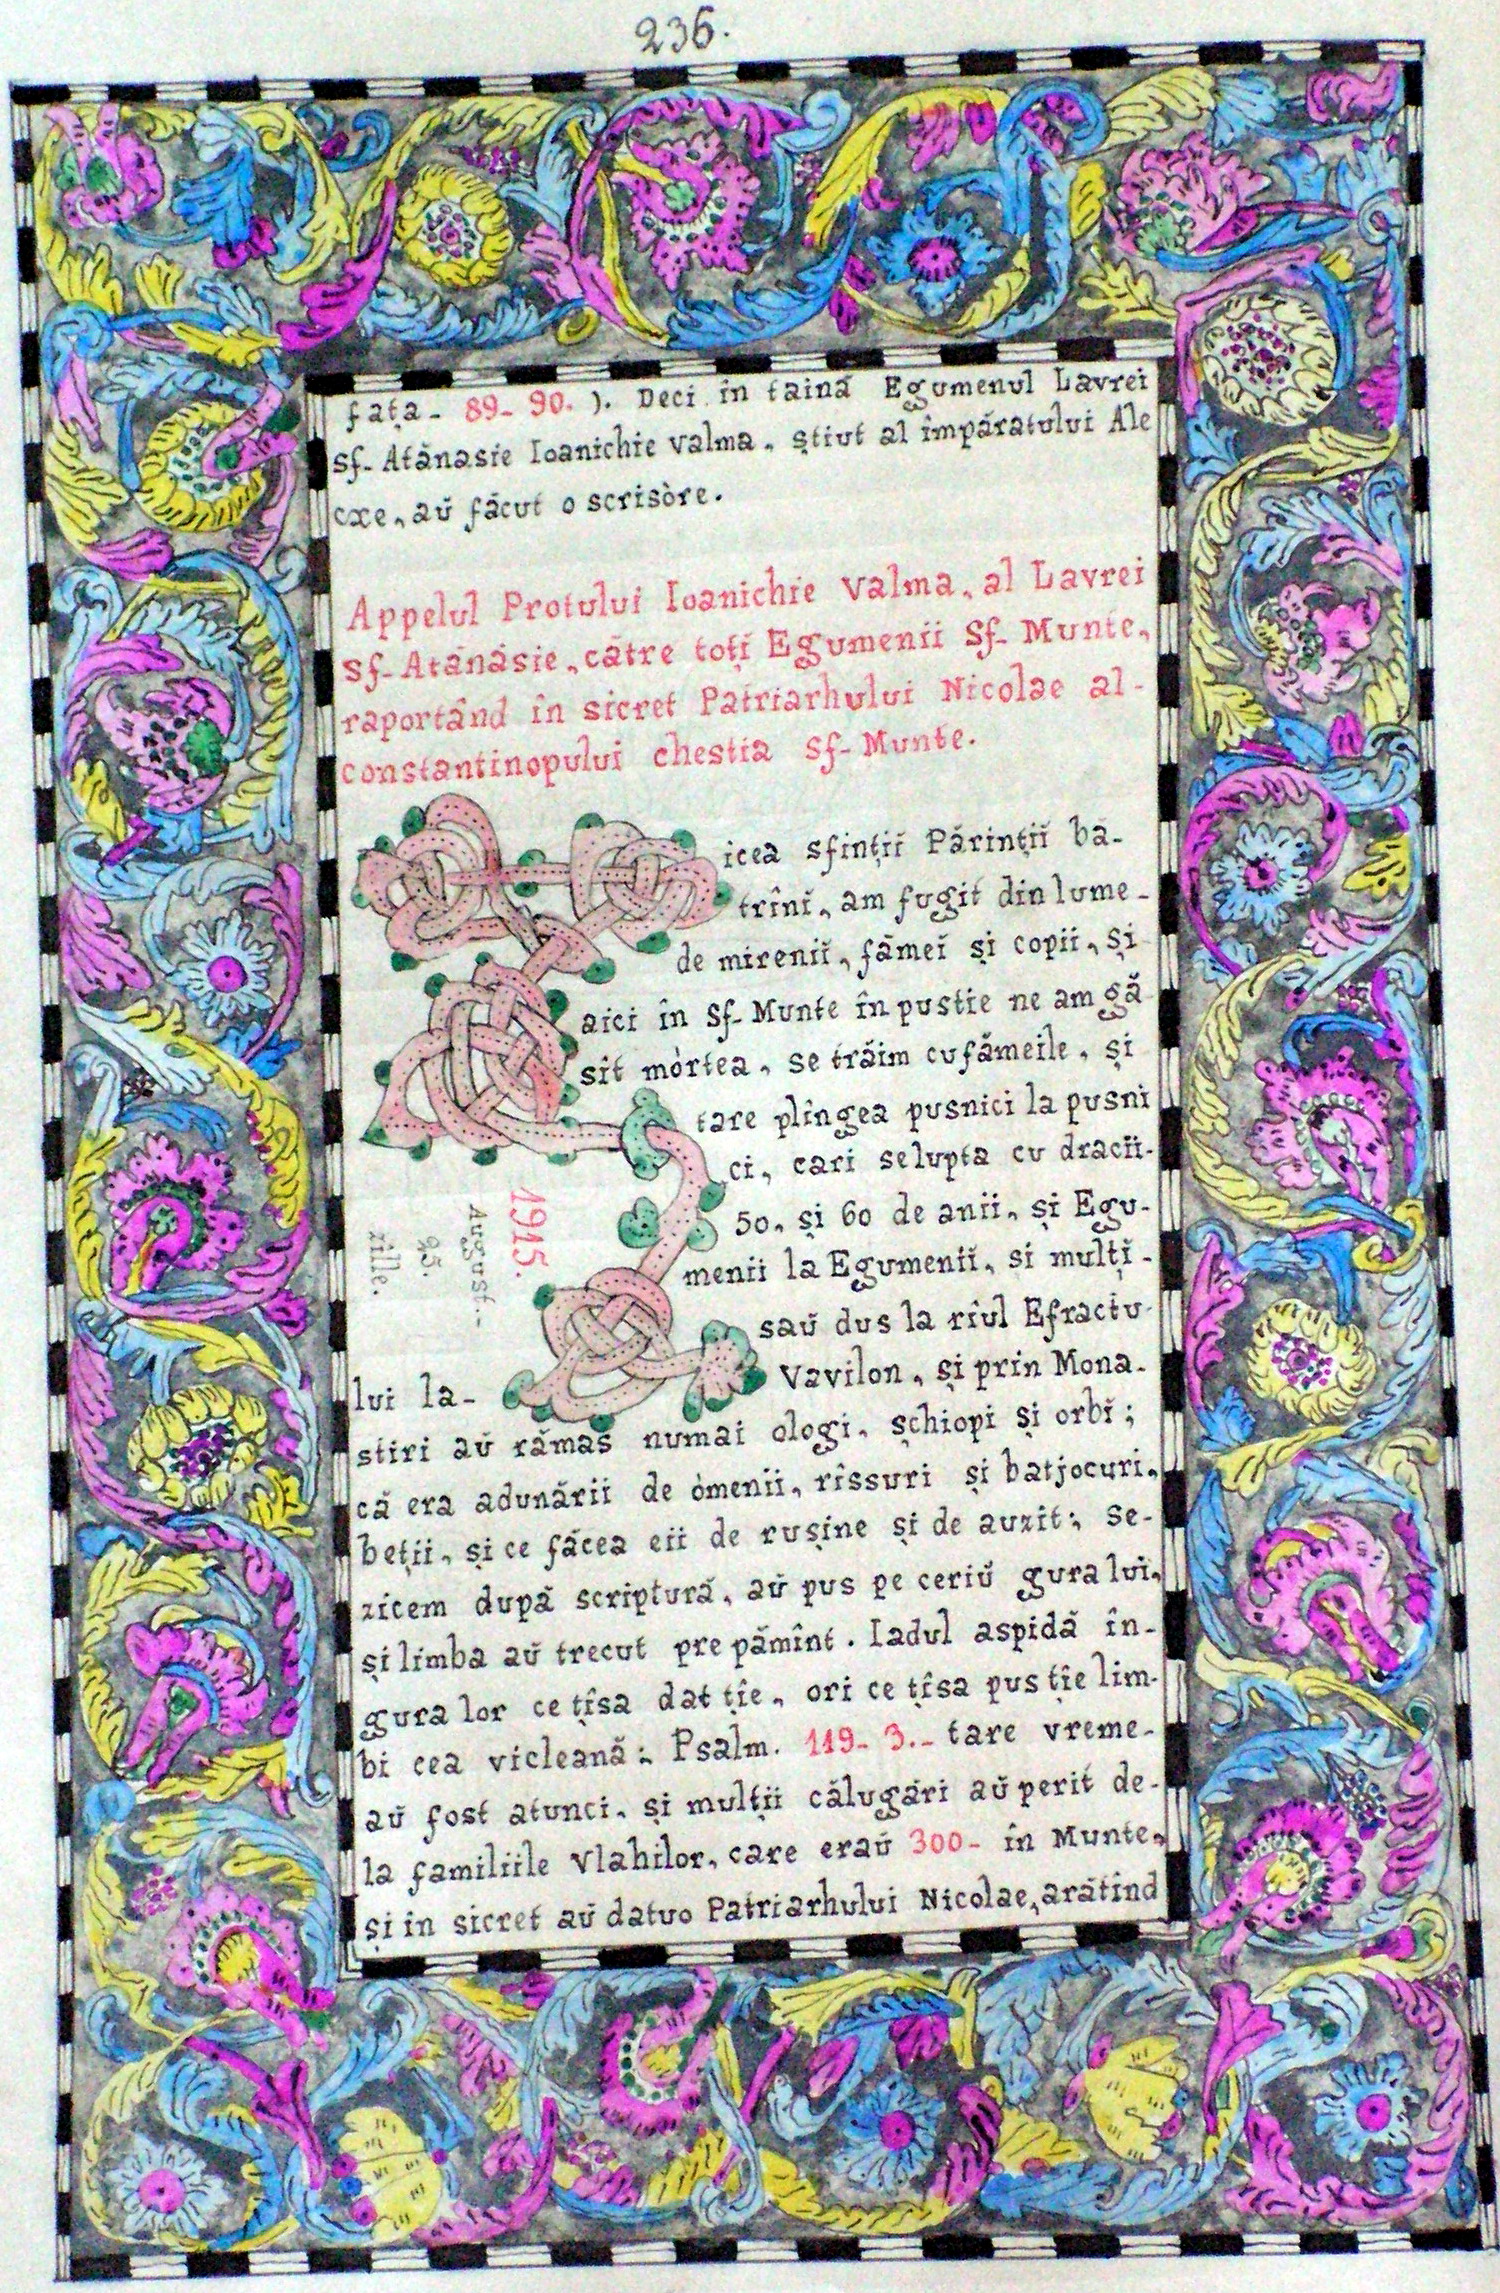 236.
fața- 89-90.). Deci în taină Egumenul Lavrei
sf-Atănasie Ioanichie Valma, știut al împăratului Ale
cxe, aŭ făcut o scrisòre.
Appelul Protului Ioanichie Valma, al Lavrei
sf-Atănăsie, cătrе toțĭ Egumenii Sf-Munte,
raportând în sicret Patriarhului Nicolae al-
constantinopului chestia Sf-Munte.
icea sfințiĭ Părințiĭ bă-
trînĭ, am fugit din lume-
de mireniĭ, fămeĭ și copiĭ, și
aici în Sf-Munte în pustie ne am gă
sit mòrtea, se trăim cu fămeile, și
tare plîngea pusnici la pusni
ci, cari se lupta cu draciĭ-
50, și 60 de aniĭ, și Egu-
menii la Egumeniĭ, si mulțĭ-
saŭ dus la rîul Efractu-
lui la- Vavilon, și prin Mona-
stiri aŭ rămas numai ologi, șchiopi și orbĭ;
că era adunăriĭ de òmeniĭ, rîssuri și batjocuri,
bețiĭ, și ce făcea eiĭ de rușine și de auzit; Se-
zicem după scriptură, aŭ pus pe ceriŭ gura lui,
și limba aŭ trecut pre pămînt. Iadul aspidă în-
gura lor ce țîsa dat țîe, ori ce țîsa pus țîe lim-
bi cea vicleană: Psalm. 119-3.- tare vreme-
aŭ fost atunci, și mulțiĭ călugări aŭ perit de-
la familiile Vlahilor, care eraŭ 300- în Munte,
și în sicret aŭ datuo Patriarhului Nicolae, arătînd
1915.
August.-
25.
zille.